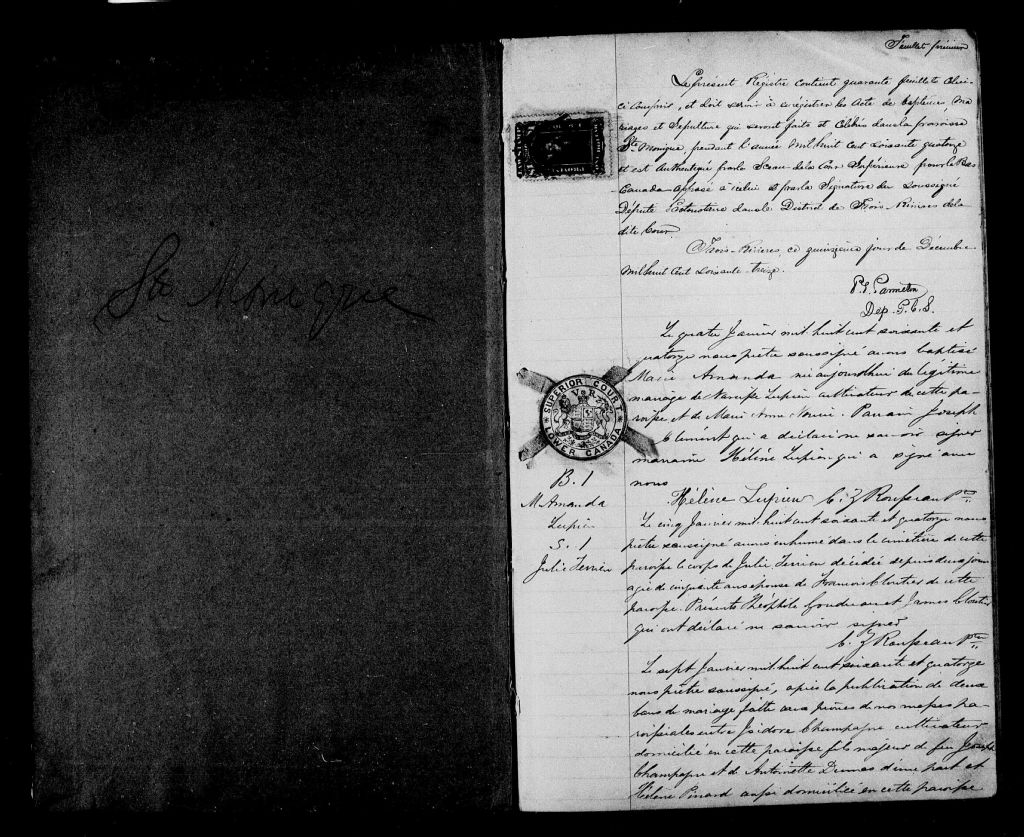 Ste Monique
Feuillet premier
Le présent Registre contient quarante feuillets celui-
ci compris, et doit servir à enrégistrer les Acte de baptêmes, Ma
riages et Sepulture qui seront faits et Célébrés dans la paroisse
Ste Monique, pendant l'année mil huit cent soixante quatorze
et est Authentiqué par le Sceau de la Cour Supérieure pour le Bas
Canada apposé à celui et par la Signature du Soussigné
Député Protonotaire dans le District de Trois-Rivières de la
dite Cour.
Trois-Rivières, ce quinzième jour de Décembre
mil huit cent soixante treize.
Dep. P.C.S.
SUPERIOR COURT
V R
LOWER CANADA
Le quatre Janvier mil huit cent soixante et
quatorze nous prêtre soussigné avons baptisé
Marie Amanda née aujourd'hui du légitime
mariage de Narcisse Lupien cultivateur de cette pa-
roisse et de Marie Anne Parrain Joseph
Clement qui a déclaré ne savoir signer
marraine Hélène Lupien qui a signé avec
nous
Hélène Lupien C. Z Rousseau Ptre
B. 1
M Amanda
Lupien
S. 1
Julie Terrien
Le cinq Janvier mil huit cent soixante et quatorze nous
prêtre soussigné avons inhumé dans le cimetière de cette
paroisse le corps de Julie Terrien décédée depuis deux jours
agée de cinquante ans épouse de François Cloutier de cette
paroisse. Présents Théophile Goudreau et James Cloutier
qui ont déclaré ne savoir signer
C. Z Rousseau Ptre
Le sept Janvier mil huit cent soixante et quatorze
nous prêtre soussigné, après la publication de deux
bans de mariage faite aux prônes de nos messes pa
roissiales entre Isidore Champagne cultivateur
domicilié en cette paroisse fils majeur de feu Joseph
Champagne et de Antoinette Dumas d'une part et
Hélène Pinard aussi domiciliée en cette paroisse